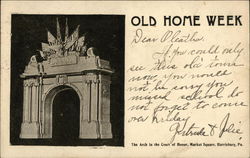 OLD HOME WEEK
Dear
If you could only
see this old town
now you would
not be sorry you
not forget to come
over Friday
Gertrude &
The Arch in the Court of Honor, Market Square, Harrisburg, Pa.